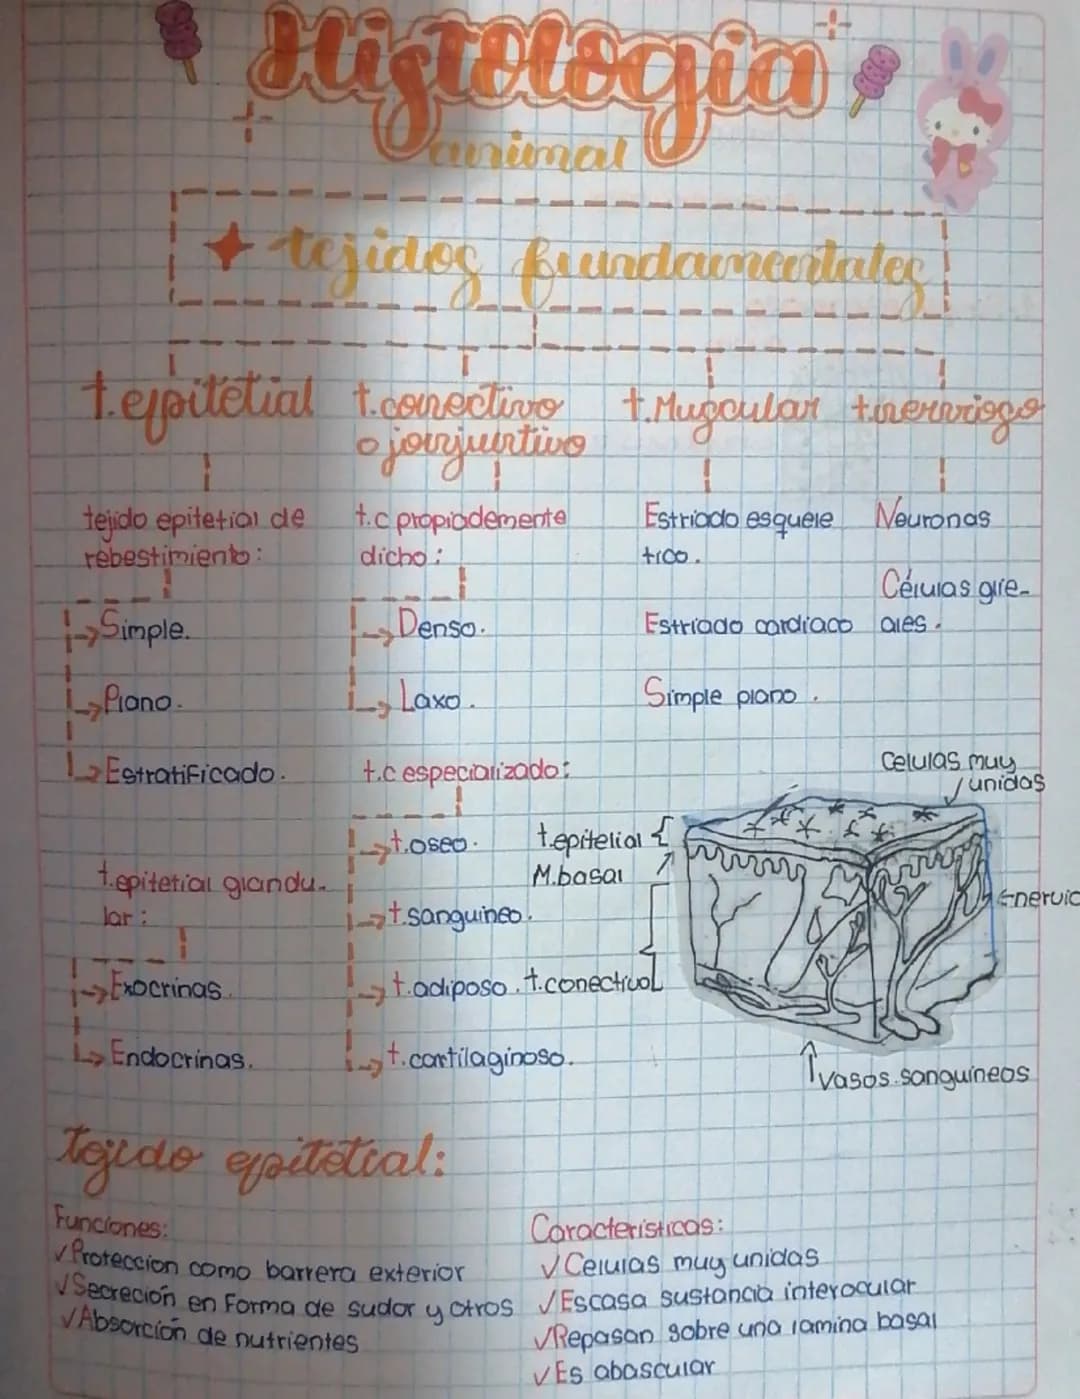 Histología
animal
tejidos fundamentales
t.epitetial
t.conectivo
o jonjuntivo
t.Muscular
t.nervioso
tejido epitetial de
rebestimiento:
Simple.
Plano.
Estratificado.
t.epitetial glandu-
lar:
Exocrinas.
Endocrinas.
t.c propiademente
dicho:
Denso.
Laxo.
t.c especializado:
t.oseo.
t.sanguineo.
t.adiposo.
t.cartilaginoso.
Estriado esquele
tico.
Estriado cardiaco
Simple plano.
Neuronas
Células glie-
ales.
Celulas muy
unidas
t.epitelial
M.basal
nervio
t.conectivo
vasos.sanguíneos
tejido epitetial:
Funciones:
✓Proteccion como barrera exterior
✓Secreción en Forma de sudor y otros
✓Absorción de nutrientes
Características:
✓Celulas muy unidas
✓Escasa sustancia interocular
✓Repasan sobre una lamina basal
✓Es abascular